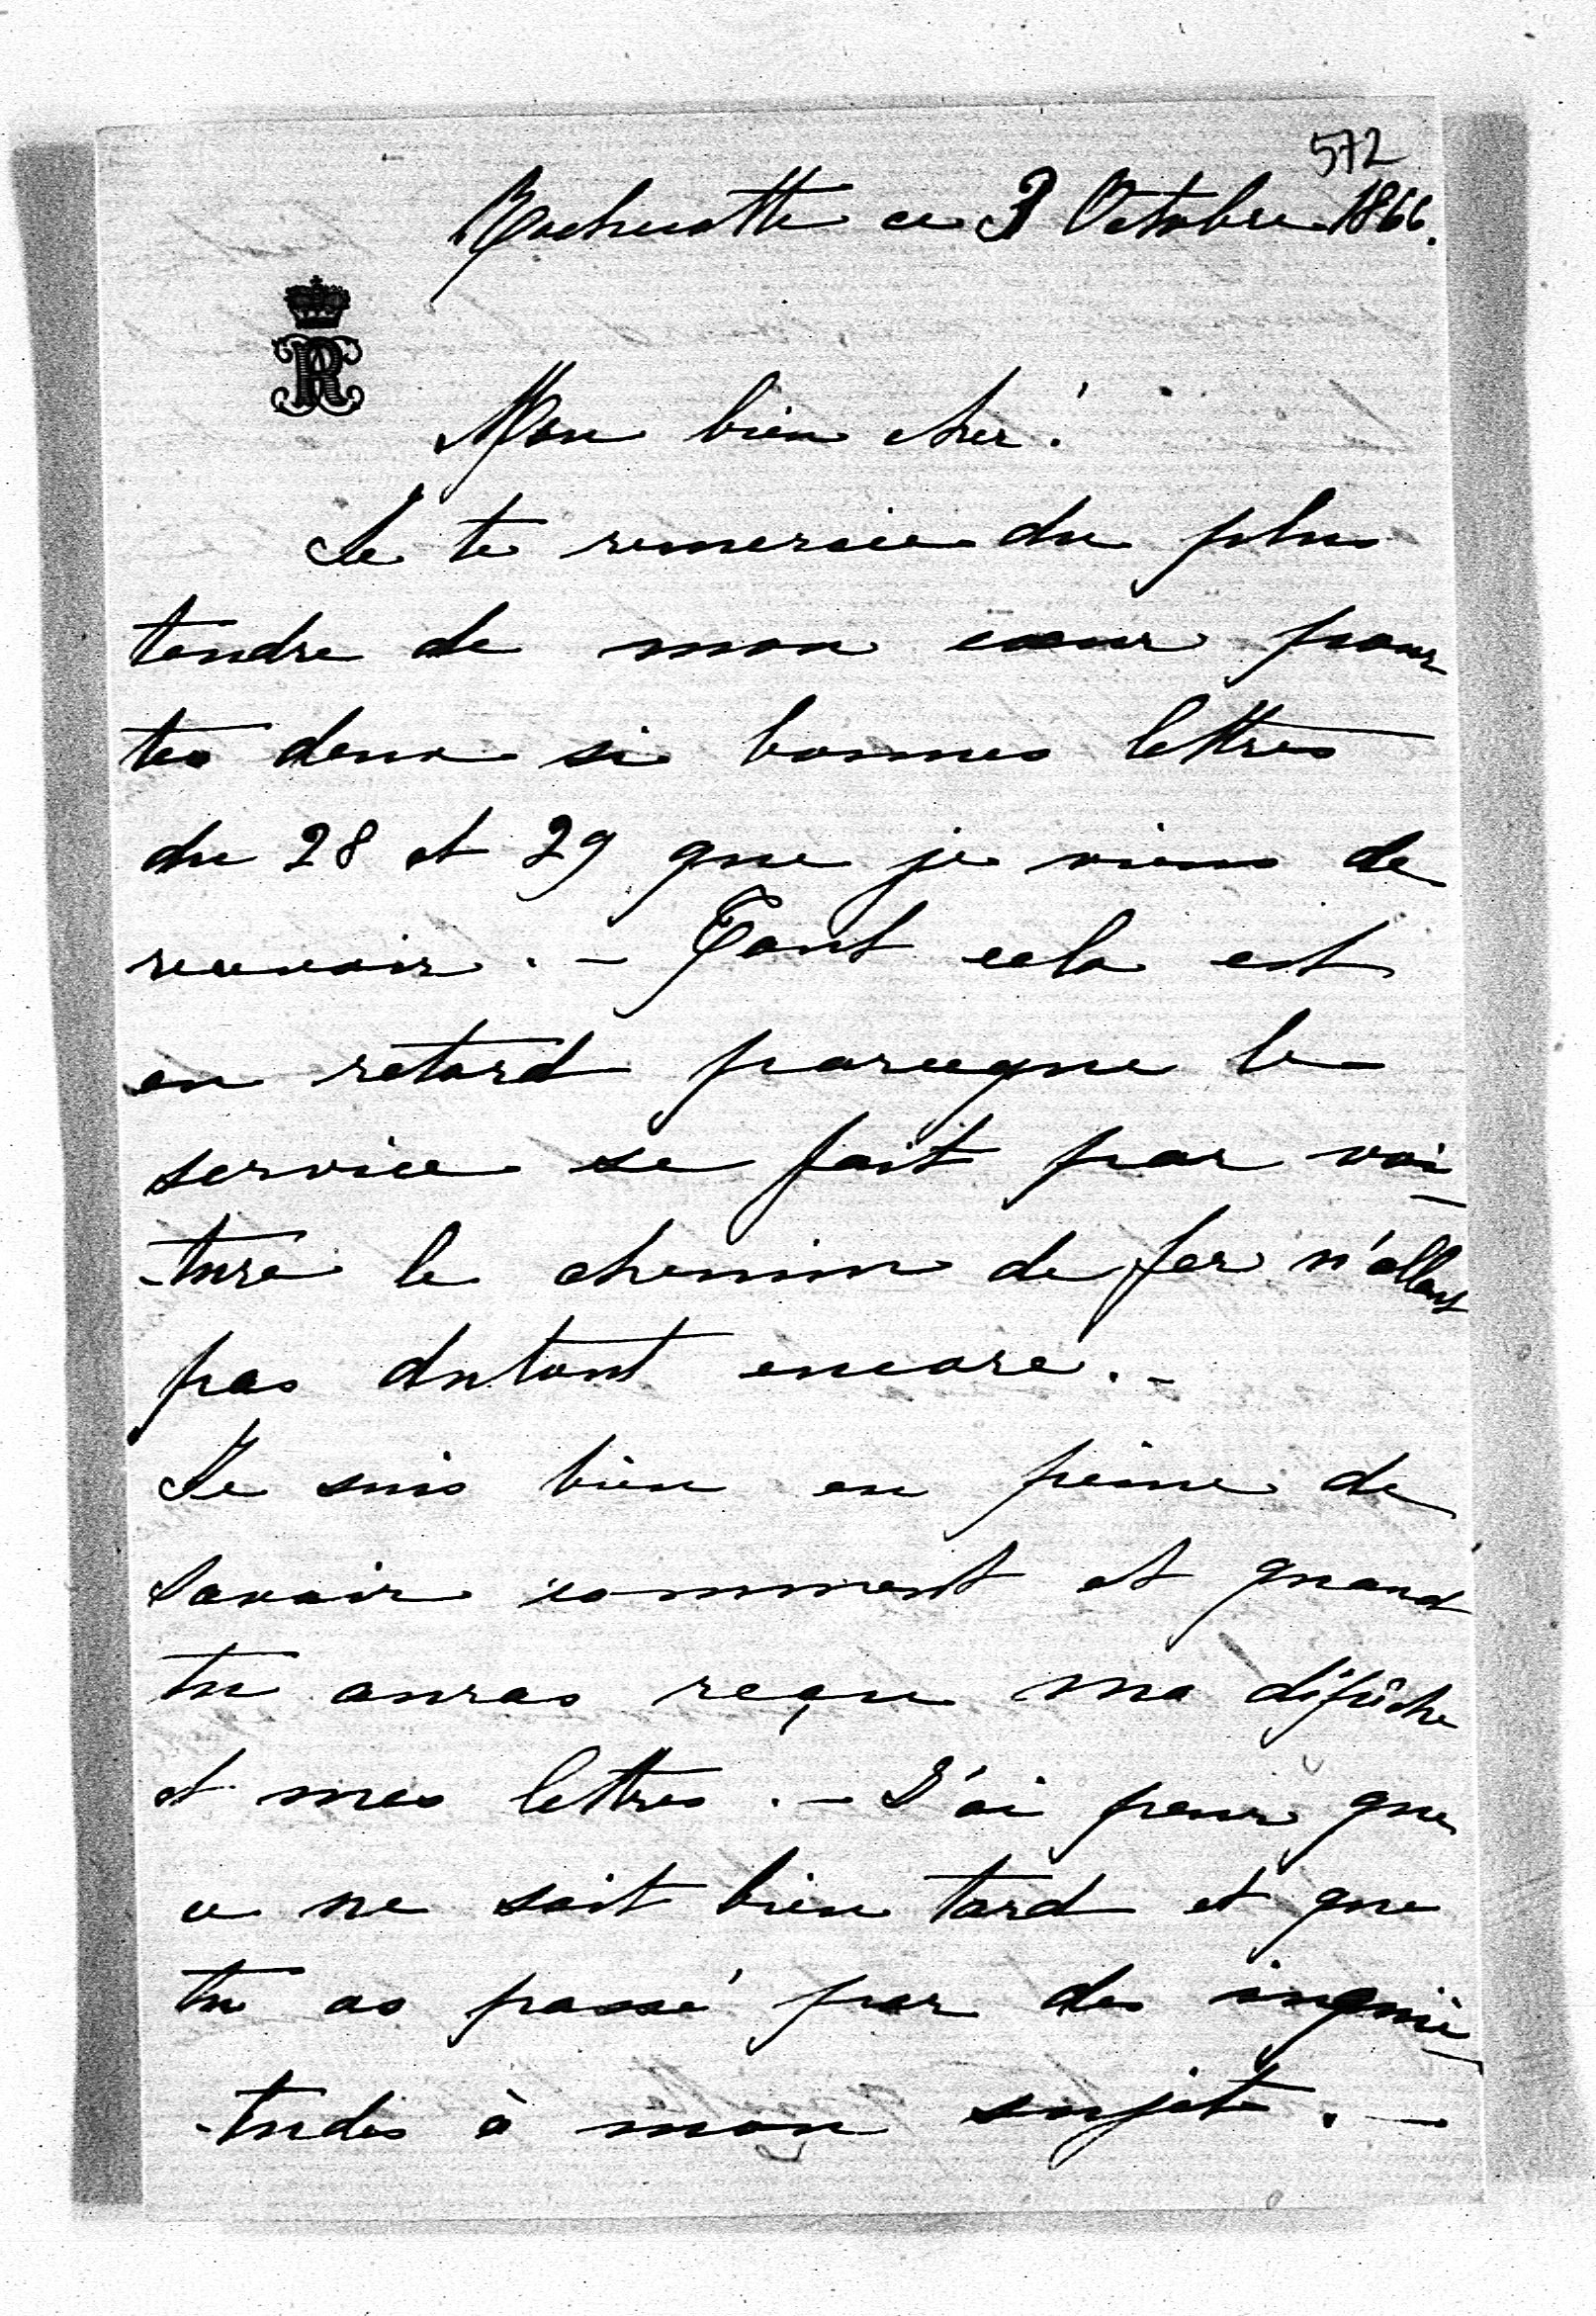 572
Rochecotte ce 3 Octobre 1866.
R
Mon bien cher!
Je te remercie du plus
tendre de mon cœur pour
tes deux si bonnes lettres
du 28 et 29 que je viens de
recevoir. - Tout cela est
en retard parceque le
service se fait par voi-
-ture le chemin de fer n'allant
pas dutout encore. -
Je suis bien en peine de
savoir comment et quand
tu auras reçu ma dépêche
et mes lettres. - J'ai peur que
ce ne soit bien tard et que
tu as passé par des inquié-
-tudes à mon sujet. -